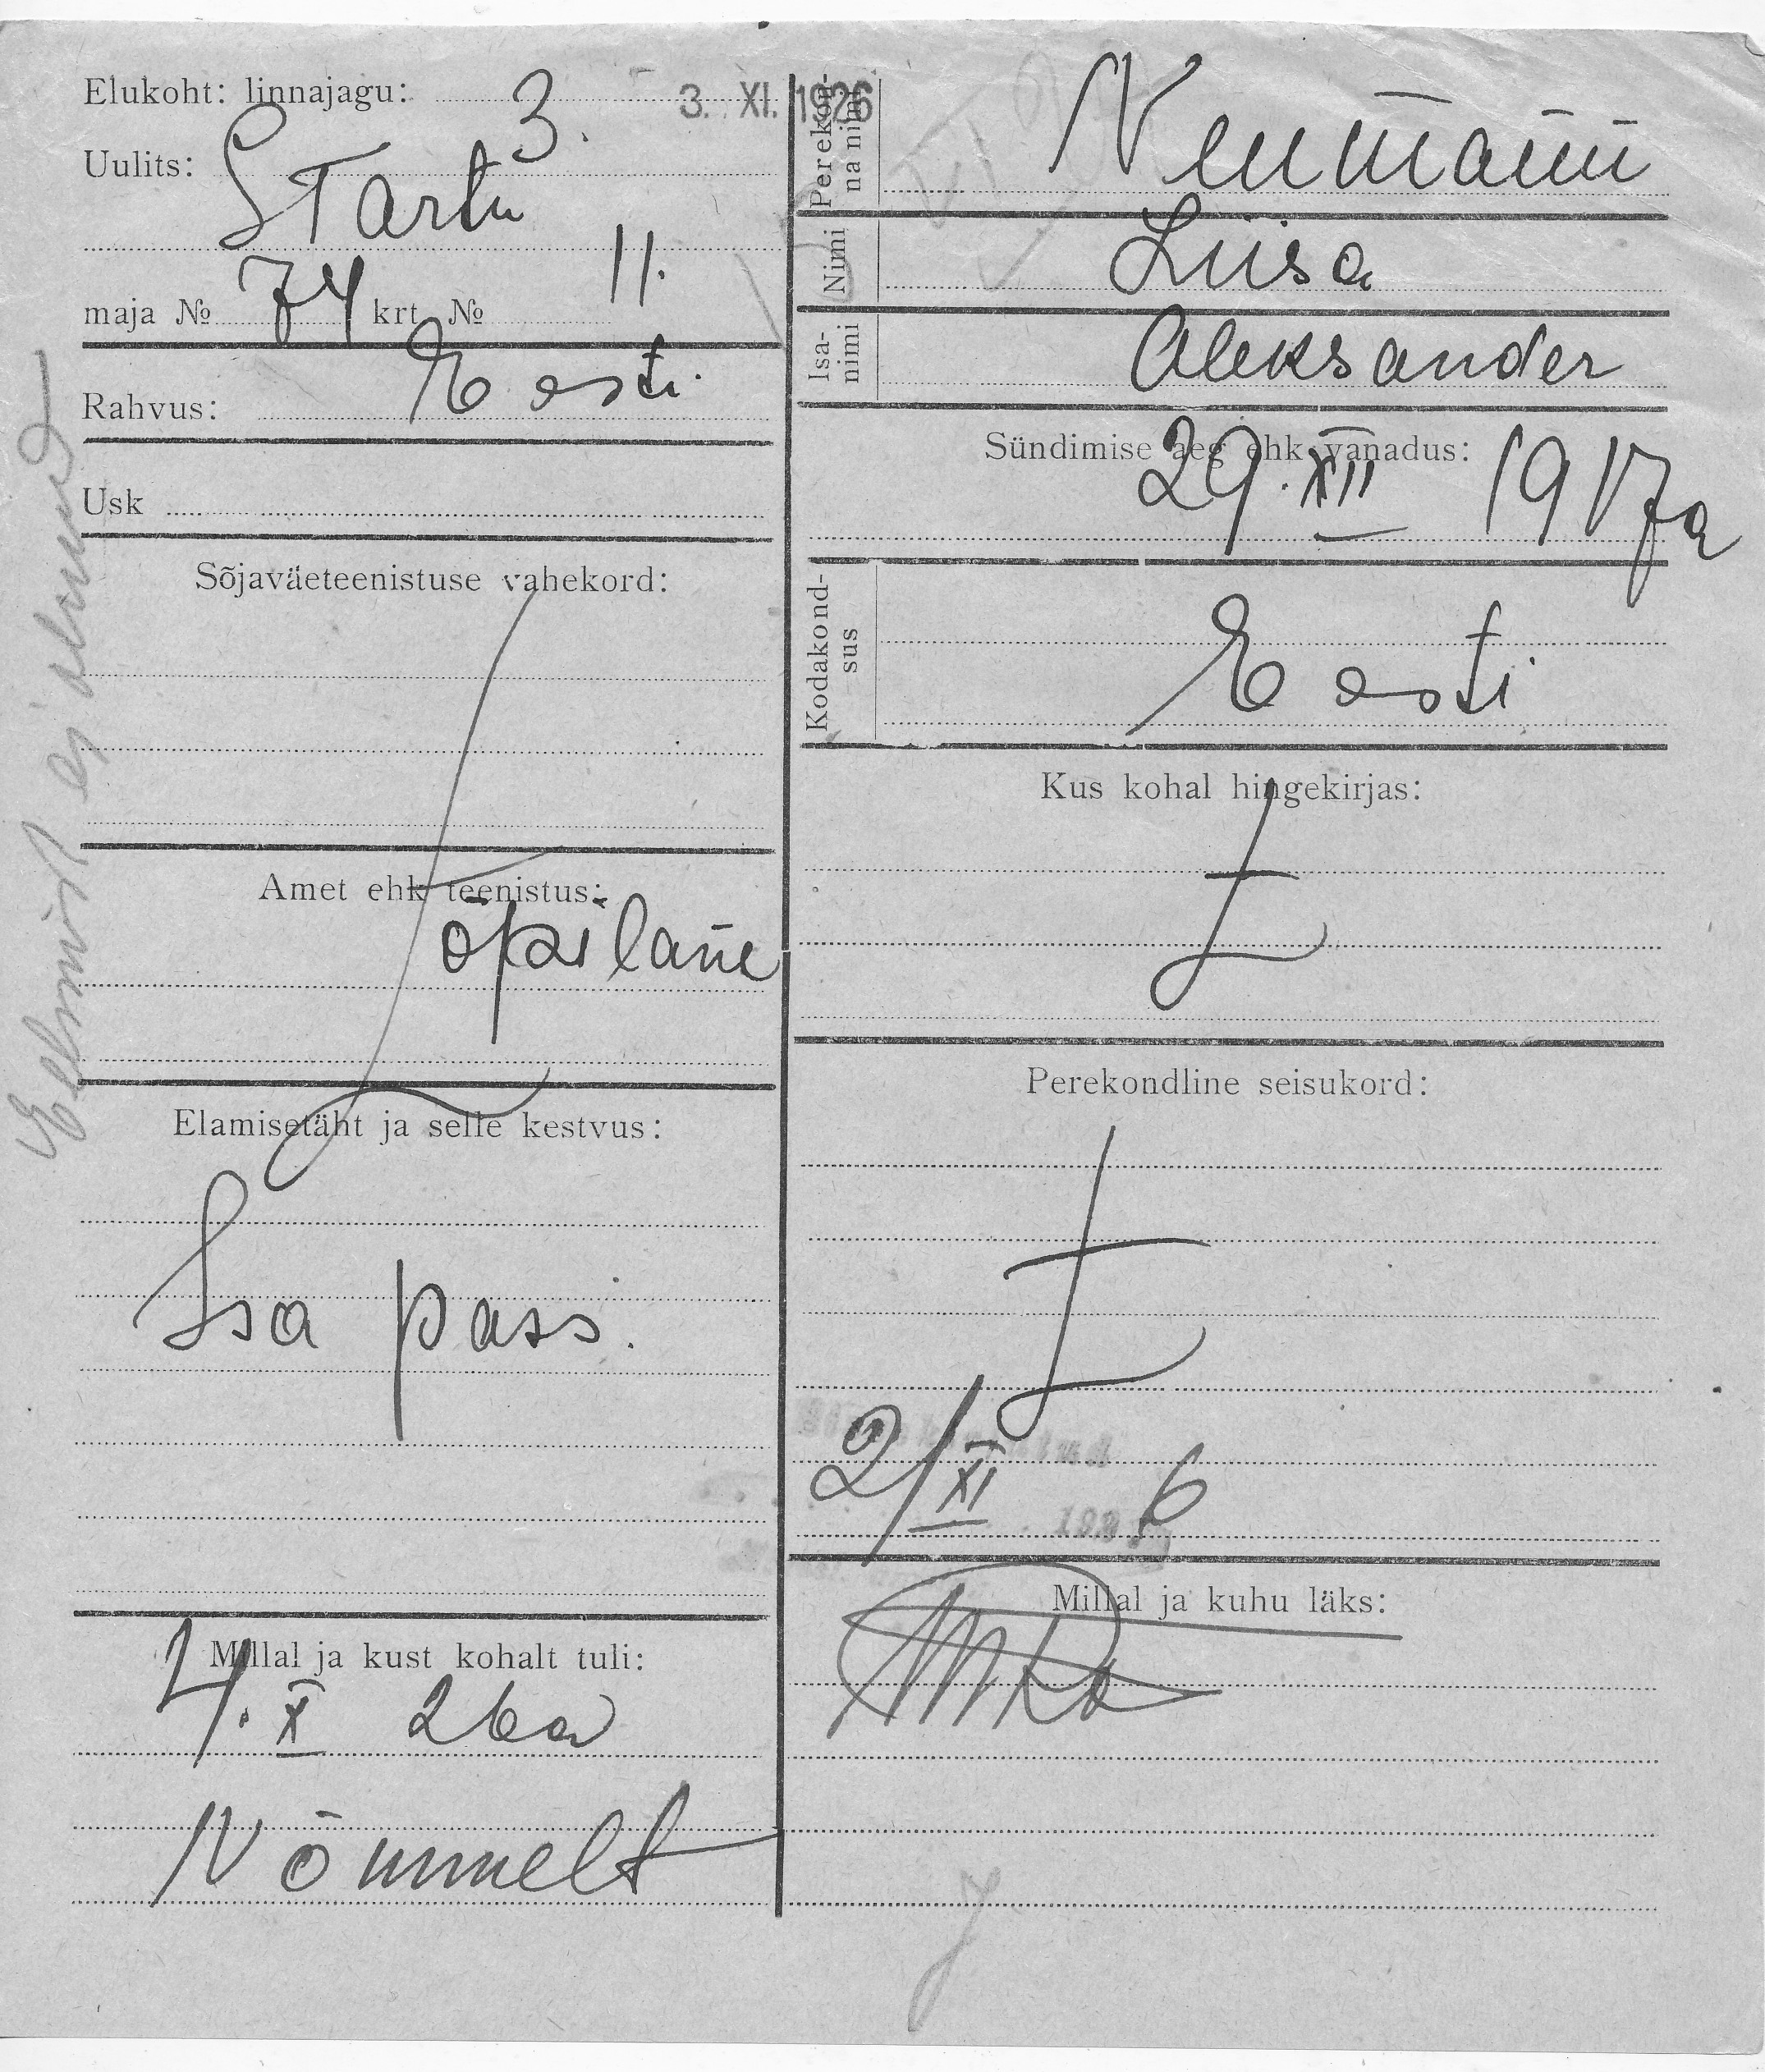 Elukoht: linnajagu: 3.
3. XI. 1926
Uulits: S Tartu
maja № 74 krt. № 11.
Rahvus: Eesti
Usk
Sõjaväeteenistuse vahekord:
Amet ehk teenistus:
õpilane
Elamisetäht ja selle kestvus:
Isa pass.
Millal ja kust kohalt tuli:
4. X 26 a
Nõmmelt
Perekonna nimi Neumann
Nimi Liisa
Isanimi Aleksander
Sündimise aeg ehk vanadus:
29. XII 1917 a
Kodakondsus Eesti
Kus kohal hingekirjas:
Perekondline seisukord:
2/XI 6
Millal ja kuhu läks:
ei ilmund